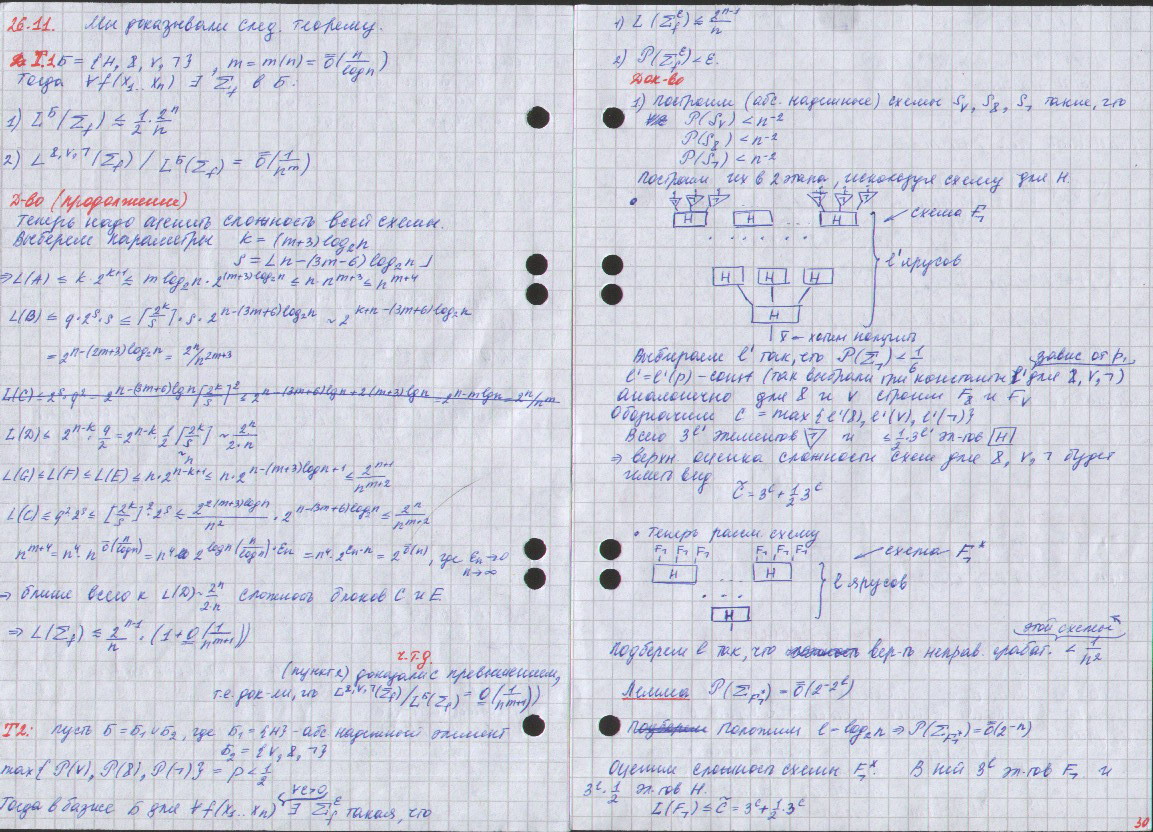 26.11. Мы доказывали след. теорему.
Т.1. Б = {H, &, ∨, ¬}, m = m(n) = ō(n/log n)
Тогда ∀f(x₁..xₙ) ∃ Σ_f в Б:
1) L^Б(Σ_f) ≲ 1/2 · 2ⁿ/n
2) L^{&,∨,¬}(Σ_f) / L^Б(Σ_f) = ō(1/n^m)
Д-во (продолжение)
Теперь надо оценить сложность всей схемы.
Выберем параметры k = (m+3)log₂n
s = ⌊n-(3m-6)log₂n⌋
⇒ L(A) ≤ k·2^{k+1} ≤ m log₂n · 2^{(m+3)log₂n} ≤ n·n^{m+3} ≤ n^{m+4}
L(B) ≤ q·2^s·s ≤ ⌈2^k/s⌉·s·2^{n-(3m+6)log₂n} ~ 2^{k+n-(3m+6)log₂n}
= 2^{n-(2m+3)log₂n} = 2ⁿ/n^{2m+3}
L(D) ≤ 2^{n-k}·q/2 = 2^{n-k}·1/2⌈2^k/s⌉ ~ 2ⁿ/(2·n)
~n
L(G) ≤ L(F) ≤ L(E) ≤ n·2^{n-k+1} ≤ n·2^{n-(m+3)log n+1} ≤ 2^{n+1}/n^{m+2}
L(C) ≤ q²2^s ≤ ⌈2^k/s⌉²·2^s ≤ 2^{2(m+3)log n}/n² · 2^{n-(3m+6)log₂n} ≤ 2ⁿ/n^{m+2}
n^{m+4} = n⁴·n^{ō(n/log n)} = n⁴·2^{log n(n/log n)·εₙ} = n⁴·2^{εₙ·n} = 2^{ō(n)}, где εₙ→0 n→∞
⇒ ближе всего к L(D)~2ⁿ/(2·n) сложность блоков C и E.
⇒ L(Σ_f) ≲ 2^{n-1}/n · (1+O(1/n^{m+1}))
ч.т.д.
(пункт 2) доказали с превышением,
т.е. док-ли, что L^{&,∨,¬}(Σ_f)/L^Б(Σ_f) = O(1/n^{m+1}))
Т2: Пусть Б = Б₁∪Б₂, где Б₁ = {H} - абс надежный элемент
Б₂ = {∨, &, ¬}
max{P(∨), P(&), P(¬)} = p < 1/2
∀ε>0
Тогда в базисе Б для ∀f(x₁..xₙ) ∃ Σ_f^ε такая, что
1) L(Σ_f^ε) ≲ 2^{n-1}/n
2) P(Σ_f^ε) < ε.
Док-во
1) Построим (абс. надежные) схемы S_∨, S_&, S_¬ такие, что
P(S_∨) < n⁻²
P(S_&) < n⁻²
P(S_¬) < n⁻²
Построим их в 2 этапа, используя схему для H.
• H H .. H
схема F_¬
l' ярусов
H H H
H
x̄ - хотим получить
Выбираем l' так, что P(Σ_¬) < 1/6
завис от p,
l' = l'(p) - const (так выбрали три константы l' для &, ∨, ¬)
Аналогично для & и ∨ строим F_& и F_∨
Обозначим C = max{l'(&), l'(∨), l'(¬)}
Всего 3^{l'} элементов ¬ и ≤ 1/2·3^{l'} эл-тов H
⇒ верхн. оценка сложности схем для &, ∨, ¬ будет
иметь вид
C̃ = 3^C + 1/2 3^C
• Теперь расм схему
F_¬ F_¬ F_¬ F_¬ F_¬ F_¬ схема F_¬*
H ... H
l ярусов
H
этой схемы
Подберем l так, что вер-ть неправ. работ. < 1/n²
Лемма P(Σ_{F_¬*}) = ō(2^{-2^l})
Положим l - log₂n ⇒ P(Σ_{F_¬*}) = ō(2⁻ⁿ)
Оценим сложность схемы F_¬*. В ней 3^l эл-тов F_¬ и
3^l·1/2 эл-тов H.
L(F_¬) ≤ C̃ = 3^C + 1/2·3^C
30